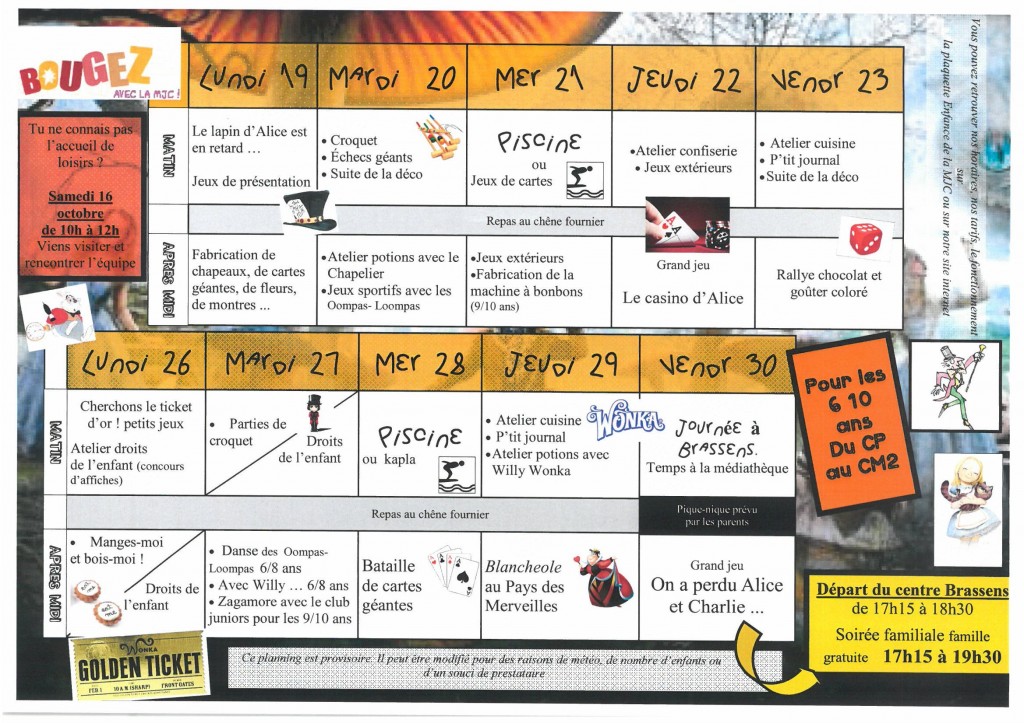 BOUGEZ
AVEC LA MJC !
Tu ne connais pas
l'accueil de
loisirs ?
Samedi 16
octobre
de 10h à 12h
Viens visiter et
rencontrer l'équipe
Lundi 19
Mardi 20
Mer 21
Jeudi 22
Vendr 23
MATIN
Le lapin d'Alice est
en retard …
Jeux de présentation
• Croquet
• Échecs géants
• Suite de la déco
Piscine
ou
Jeux de cartes
•Atelier confiserie
• Jeux extérieurs
• Atelier cuisine
• P'tit journal
•Suite de la déco
Repas au chêne fournier
APRES MIDI
Fabrication de
chapeaux, de cartes
géantes, de fleurs,
de montres ...
•Atelier potions avec le
Chapelier
•Jeux sportifs avec les
Oompas- Loompas
•Jeux extérieurs
•Fabrication de la
machine à bonbons
(9/10 ans)
Grand jeu
Le casino d'Alice
Rallye chocolat et
goûter coloré
Vous pouvez retrouver nos horaires, nos tarifs, le fonctionnement
sur
la plaquette Enfance de la MJC ou sur notre site internet
Lundi 26
Mardi 27
Mer 28
Jeudi 29
Vendr 30
MATIN
Cherchons le ticket
d'or ! petits jeux
Atelier droits
de l'enfant (concours
d'affiches)
• Parties de
croquet
Droits
de l'enfant
Piscine
ou kapla
• Atelier cuisine
• P'tit journal
•Atelier potions avec
Willy Wonka
WONKA
Journée à
Brassens.
Temps à la médiathèque
Repas au chêne fournier
Pique-nique prévu
par les parents
APRES MIDI
• Manges-moi
et bois-moi !
Droits de
l'enfant
• Danse des Oompas-
Loompas 6/8 ans
• Avec Willy … 6/8 ans
• Zagamore avec le club
juniors pour les 9/10 ans
Bataille
de cartes
géantes
Blancheole
au Pays des
Merveilles
Grand jeu
On a perdu Alice
et Charlie ...
Pour les
6 10
ans
Du CP
au CM2
Départ du centre Brassens
de 17h15 à 18h30
Soirée familiale famille
gratuite 17h15 à 19h30
WONKA
GOLDEN TICKET
FEB 1 10 A M (SHARP) FRONT GATES
Ce planning est provisoire. Il peut être modifié pour des raisons de météo, de nombre d'enfants ou
d'un souci de prestataire